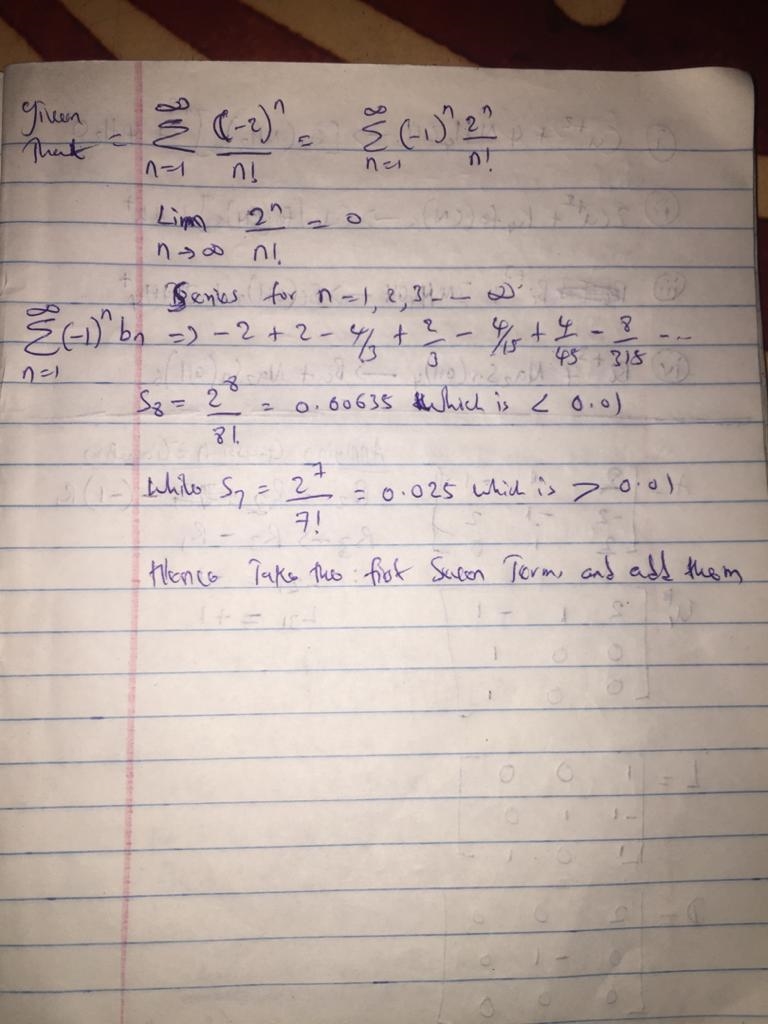 Given that = ∞Σn=1 (-2)^n / n! = ∞Σn=1 (-1)^n 2^n / n!
Lim n→∞ 2^n / n! = 0
Series for n = 1, 2, 3 - - ∞
∞Σn=1 (-1)^n bn => -2 + 2 - 4/3 + 2/3 - 4/15 + 4/45 - 8/315 ...
S8 = 2^8 / 8! = 0.00635 which is < 0.01
While S7 = 2^7 / 7! = 0.025 which is > 0.01
Hence Take the first Seven Term and add them